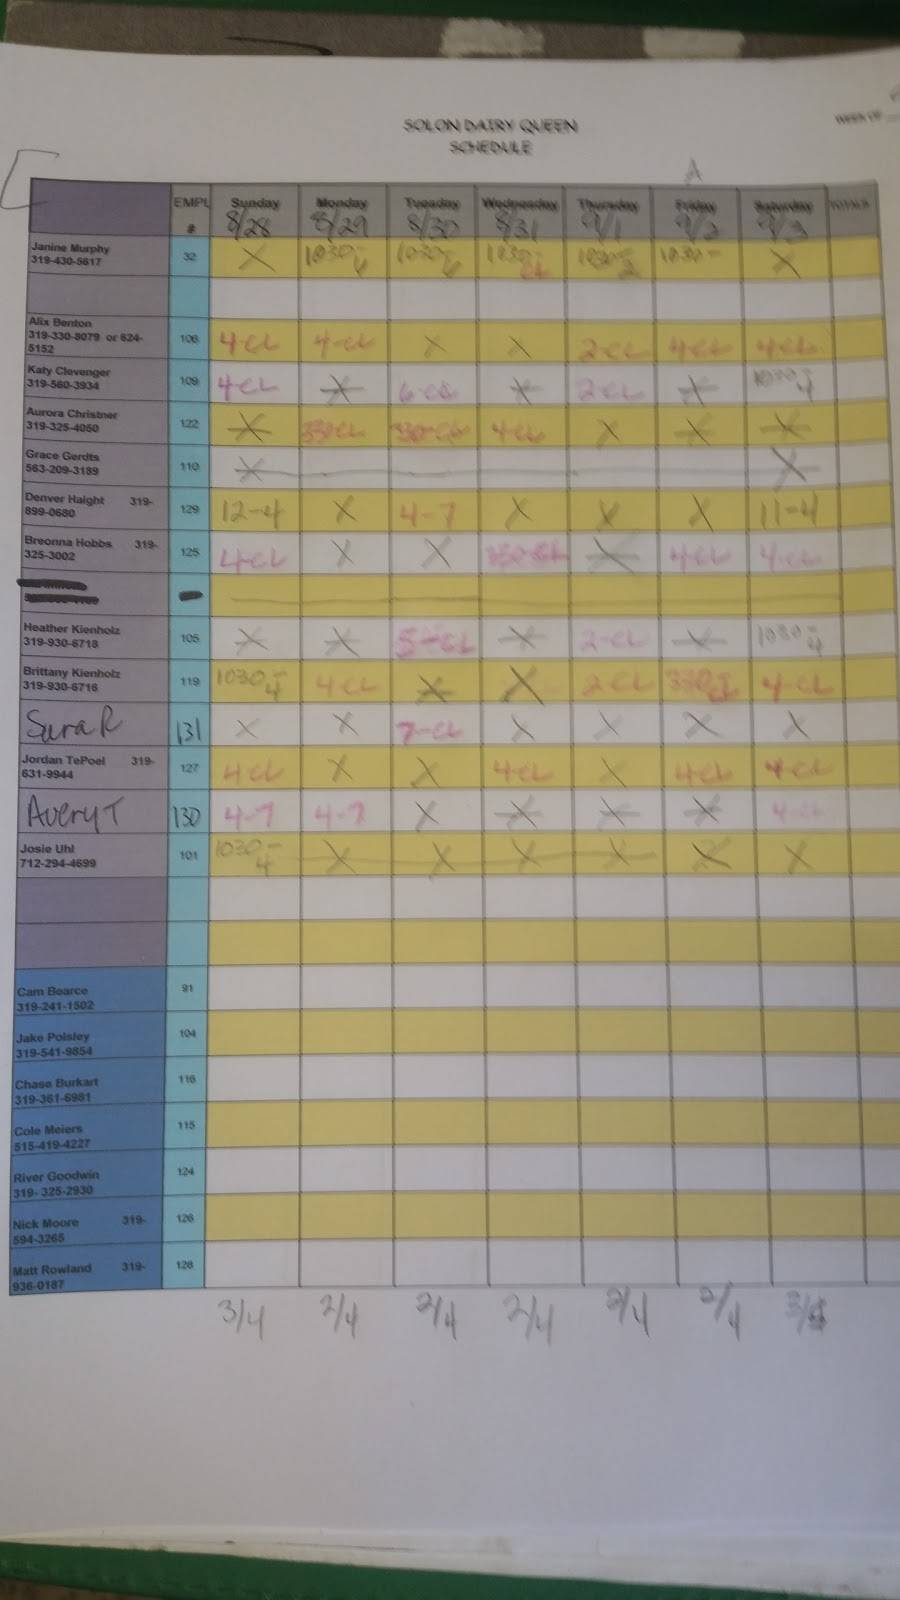 SOLON DAIRY QUEEN
WEEK OF
SCHEDULE
A
EMPL # Sunday Monday Tuesday Wednesday Thursday Friday Saturday TOTALS
8/28 8/29 8/30 8/31 9/1 9/2 9/3
Janine Murphy
319-430-5617 32 X 1030- 1030- 1030- CL 1030- 1030- X
Alix Benton
319-330-8079 or 624-
5152 106 4-CL 4-CL X X 2-CL 4-CL 4-CL
Katy Clevenger
319-560-3934 109 4-CL X X 2-CL X 1030-4
Aurora Christner
319-325-4050 122 X 330-CL 330-CL 4-CL X X X
Grace Gerdts
563-209-3189 110 X X
Denver Haight 319-
899-0680 129 12-4 X 4-7 X X X 11-4
Breonna Hobbs 319-
325-3002 125 4-CL X X 330-CL X 4-CL 4-CL
Heather Kienholz
319-930-6718 105 X X 5-CL X 2-CL X 1030-4
Brittany Kienholz
319-930-6716 119 1030-4 4-CL X X 2-CL 330-CL 4-CL
Sara R 131 X X 7-CL X X X X
Jordan TePoel 319-
631-9944 127 4-CL X X 4-CL X 4-CL 4-CL
Avery T 130 4-7 4-7 X X X X 4-CL
Josie Uhl
712-294-4699 101 1030-4 X X X X X X
Cam Bearce
319-241-1502 91
Jake Polsley
319-541-9854 104
Chase Burkart
319-361-6981 116
Cole Meiers
515-419-4227 115
River Goodwin
319- 325-2930 124
Nick Moore 319-
594-3265 126
Matt Rowland 319-
936-0187 128
3/4 2/4 2/4 2/4 2/4 2/4 3/